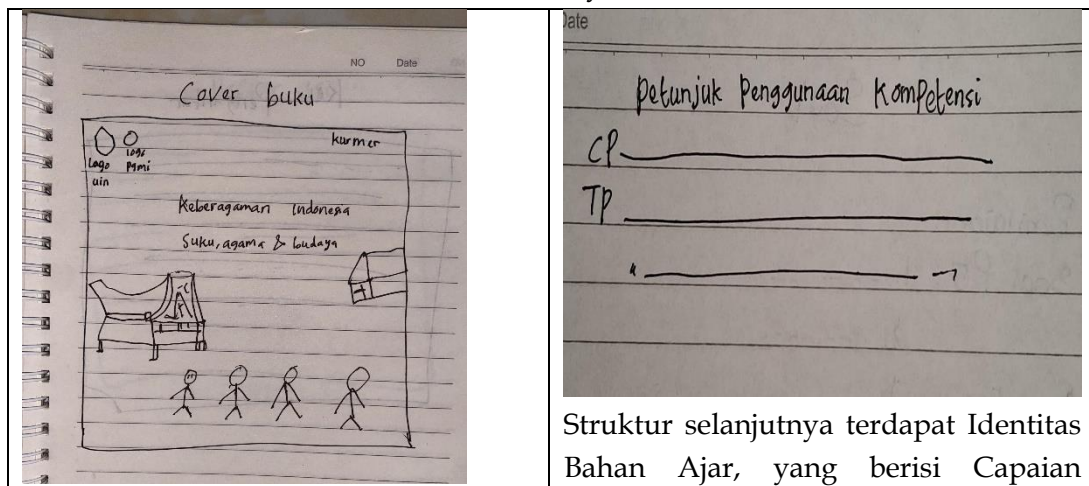 NO Date
Cover buku
kurmer
Logo uin
logo pgmi
Keberagaman indonesia
Suku, agama & budaya
Date
petunjuk Penggunaan Kompetensi
CP
TP
Struktur selanjutnya terdapat Identitas
Bahan Ajar, yang berisi Capaian